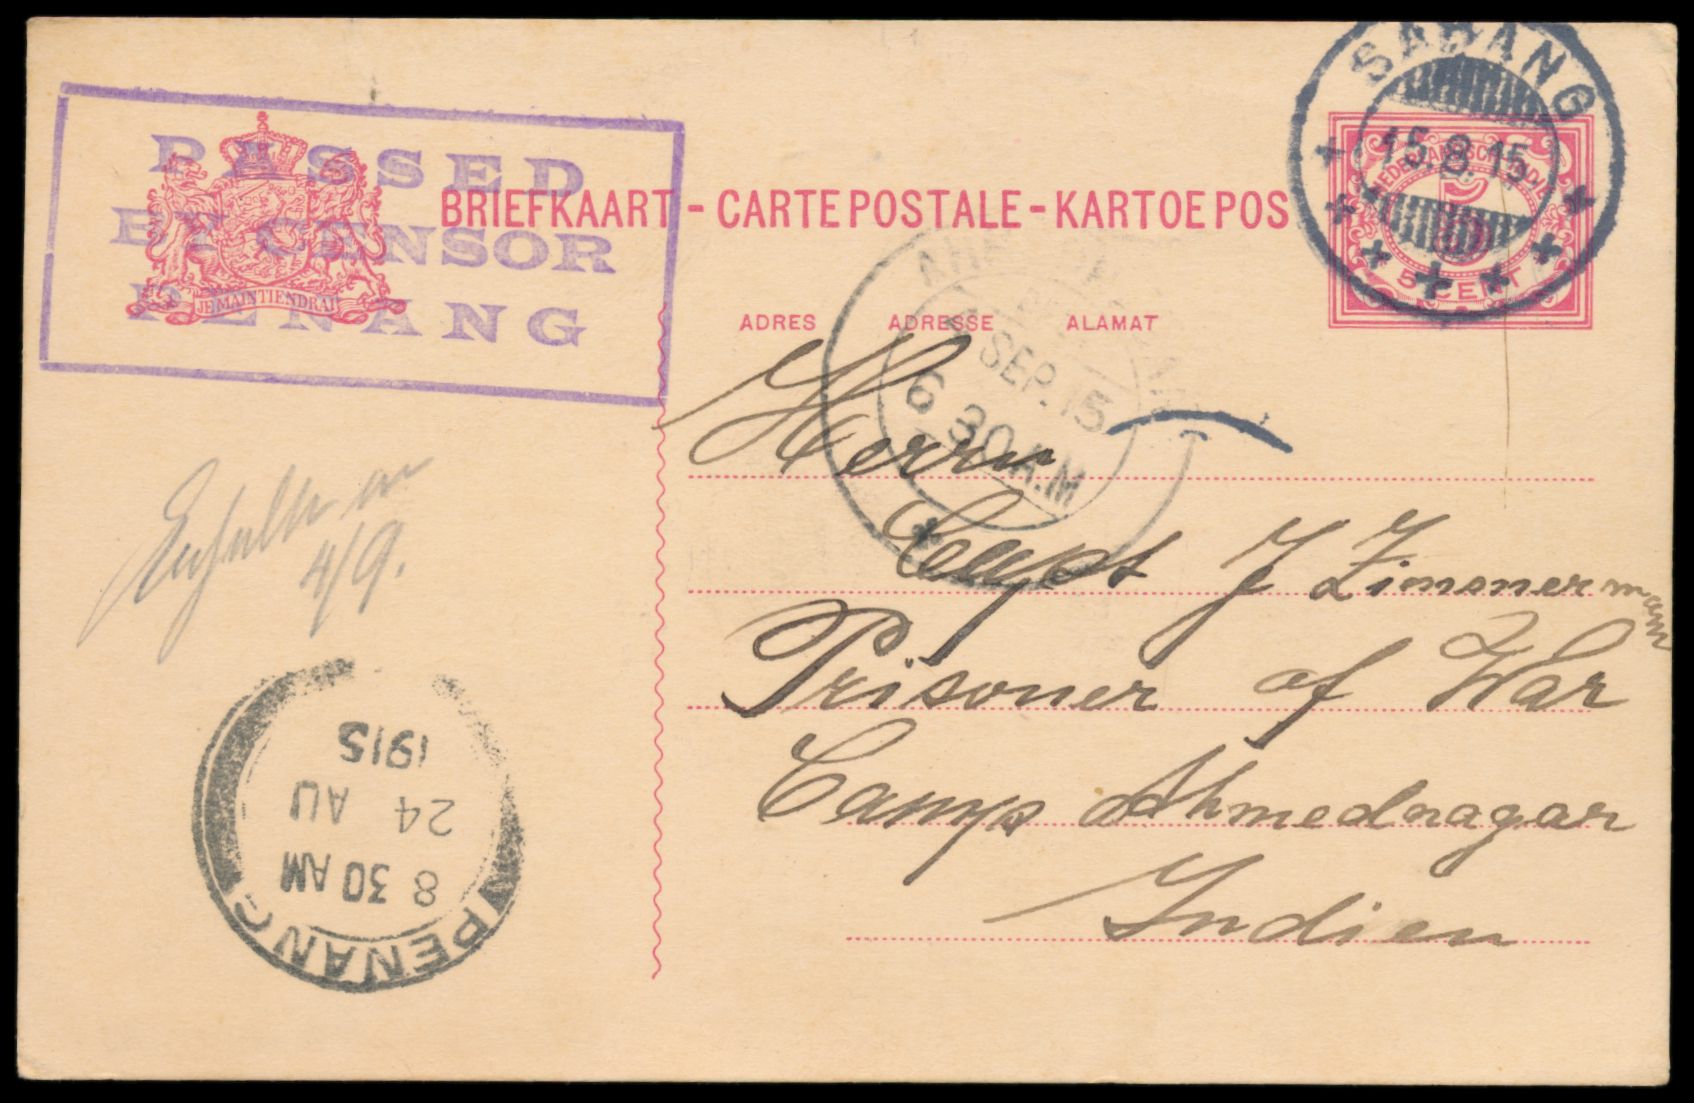 PASSED
BY CENSOR
PENANG
JE MAINTIENDRAI
BRIEFKAART - CARTE POSTALE - KARTOE POS
SABANG
15.8.15
5
5 CENT
ADRES ADRESSE ALAMAT
SEP.15
6 30 A.M
Herrn
Capt J Zimmermann
Prisoner of War
Camp Ahmednagar
Indien
Erhalten am
4/9.
PENANG
8 30 AM
24 AU
1915